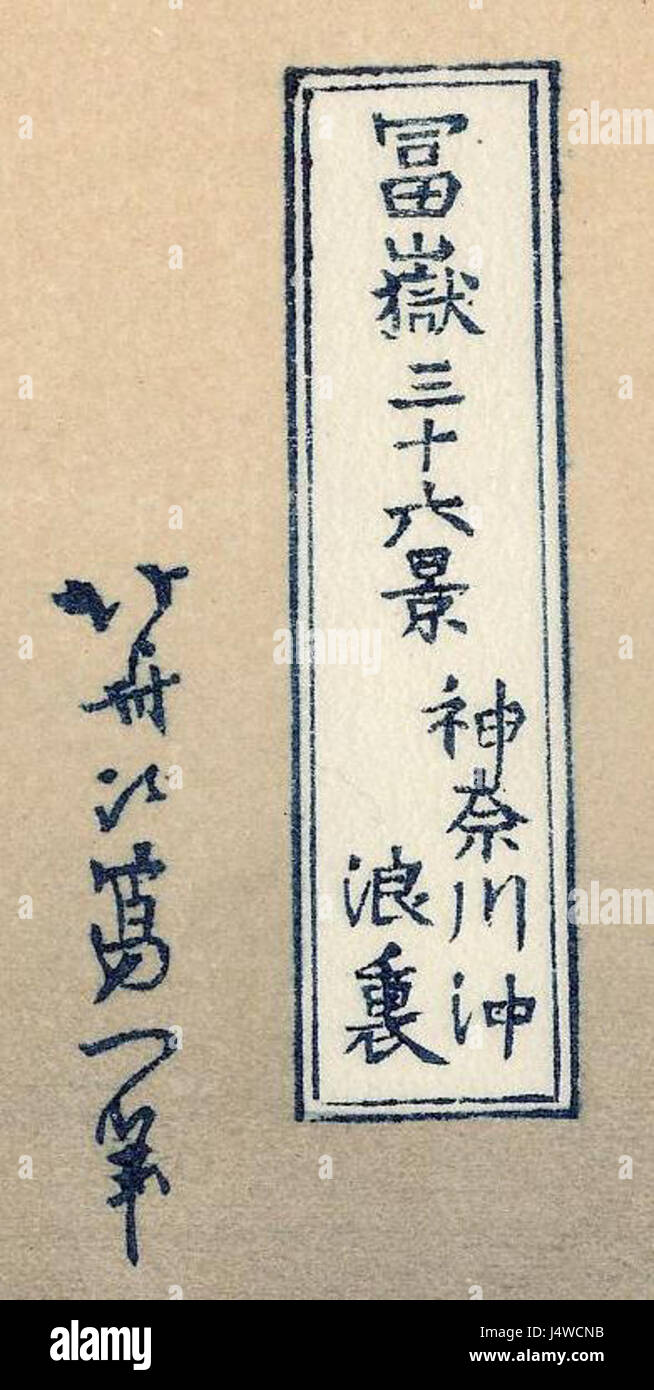 冨嶽三十六景
神奈川沖
浪裏
北斎改為一筆
alamy
Image ID: J4WCNB
www.alamy.com